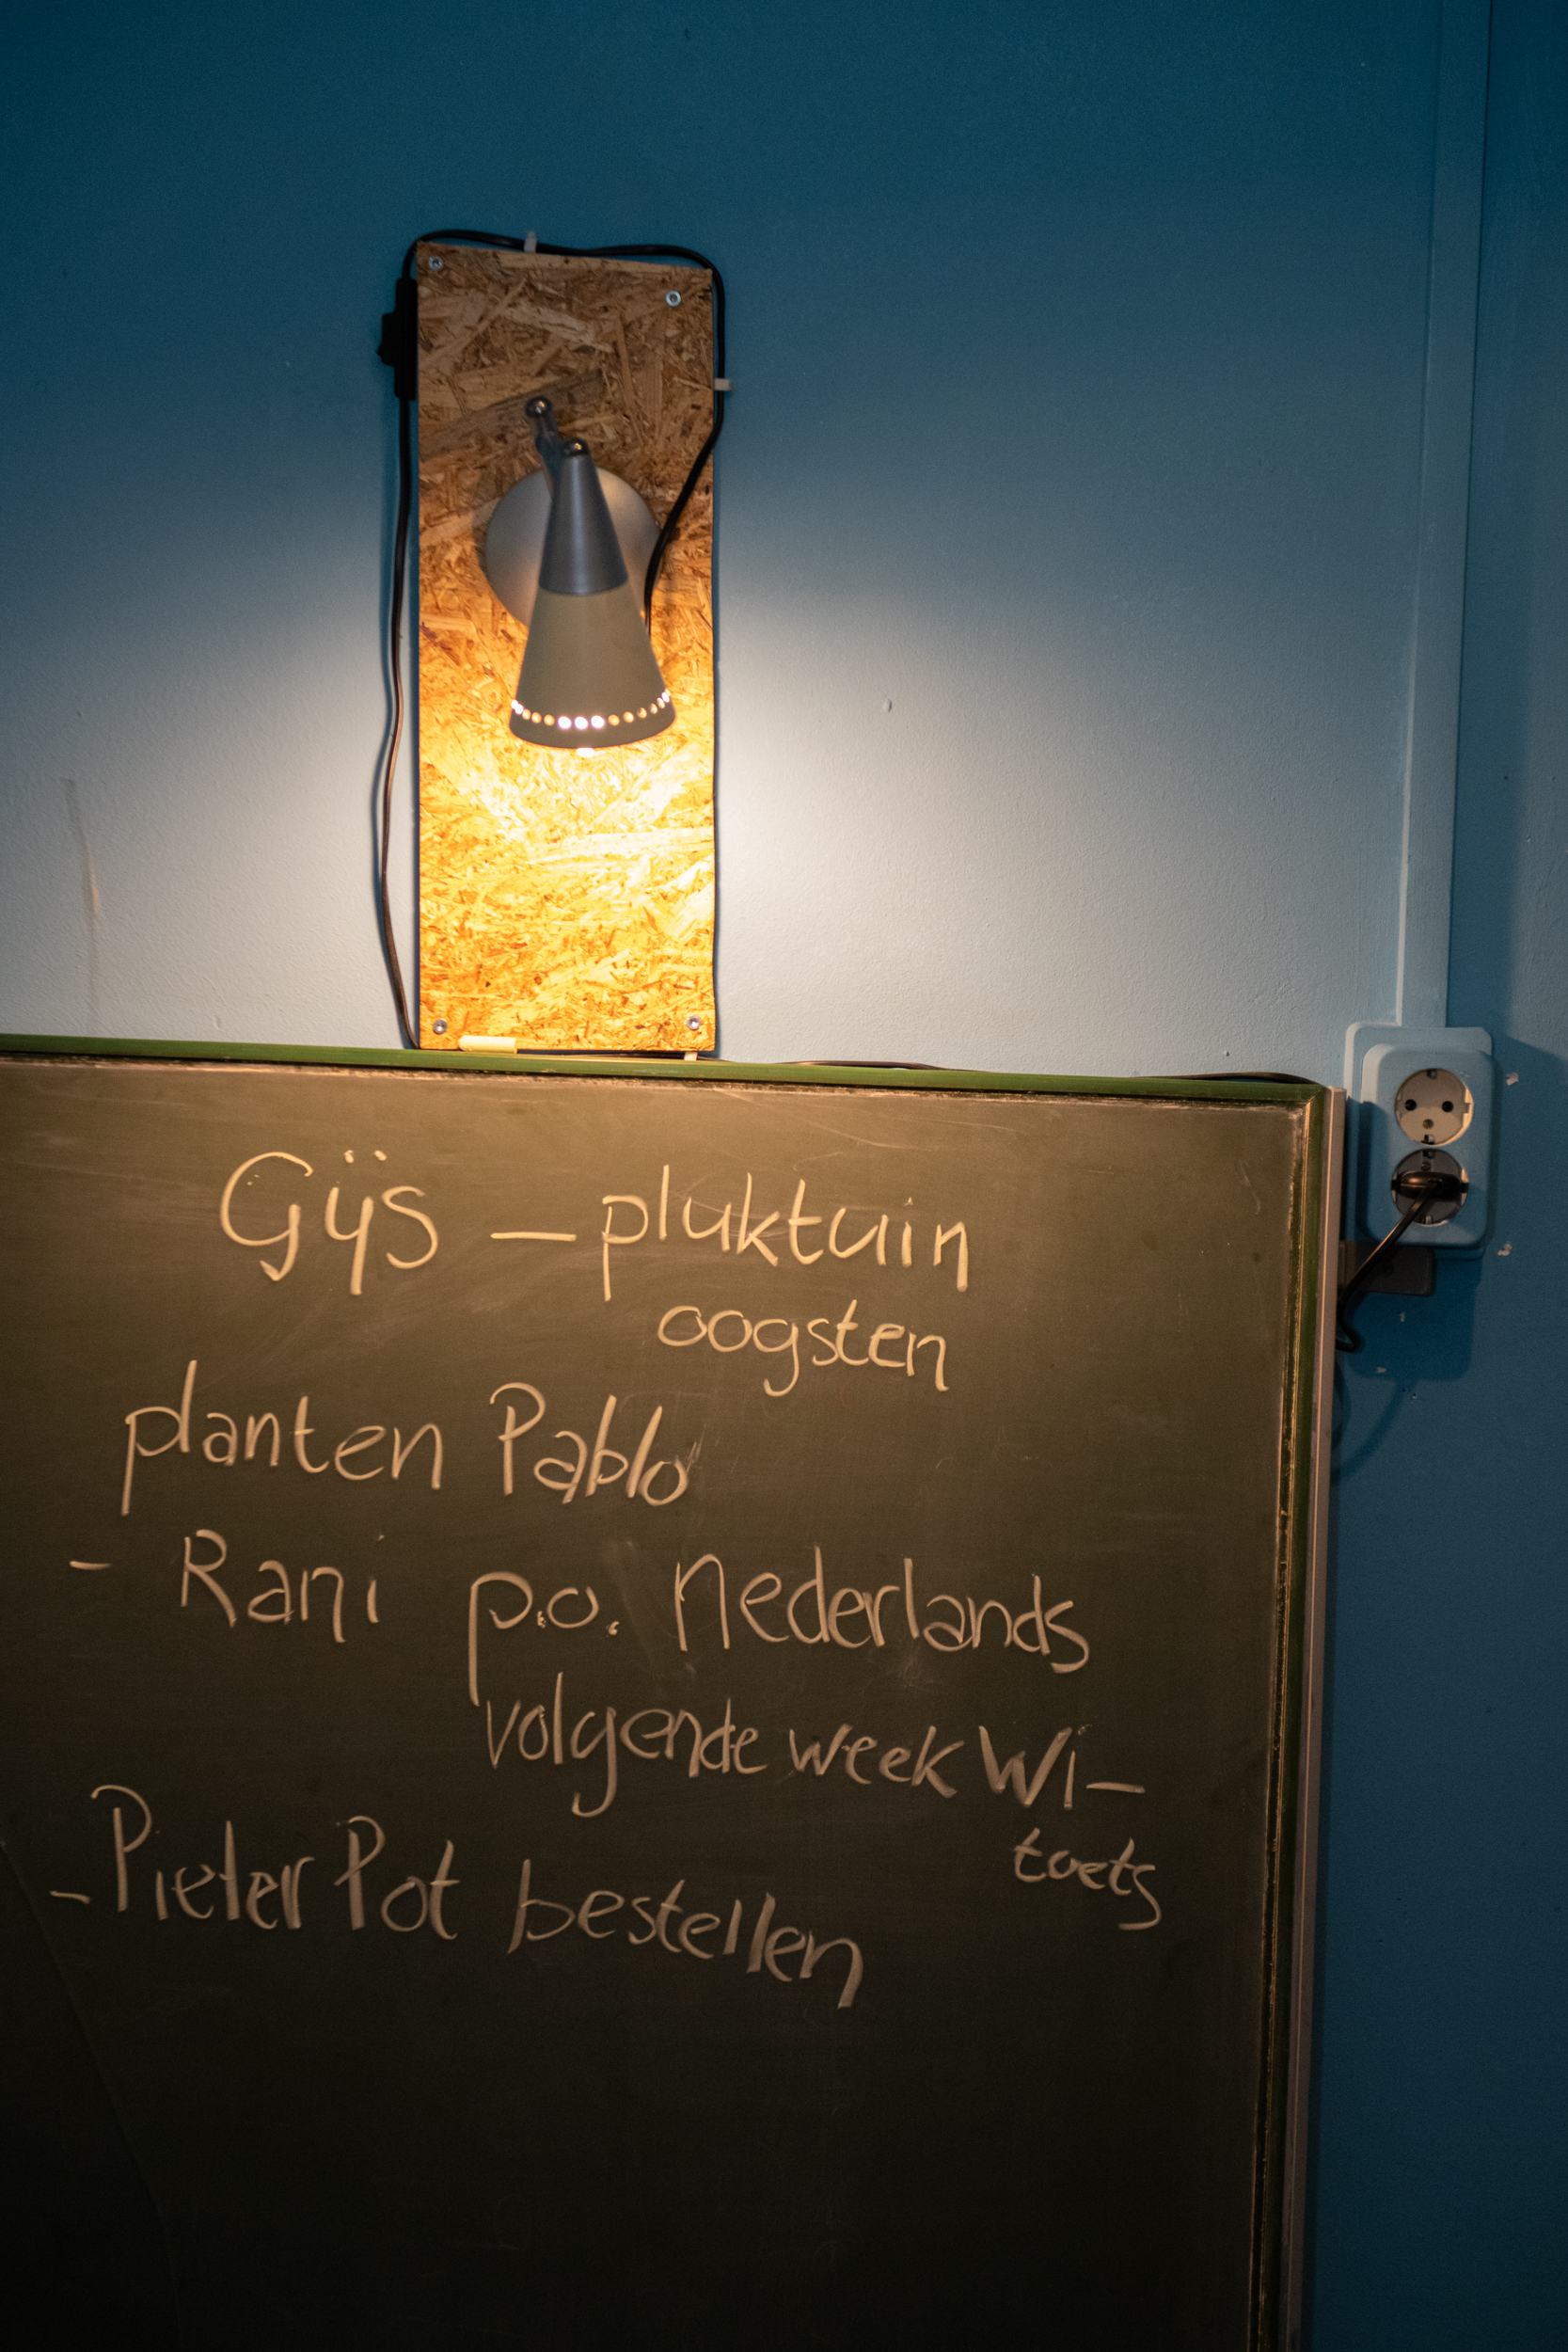 Gijs – pluktuin
oogsten
planten Pablo
- Rani p.o. nederlands
volgende week Wi-
toets
- Pieter Pot bestellen